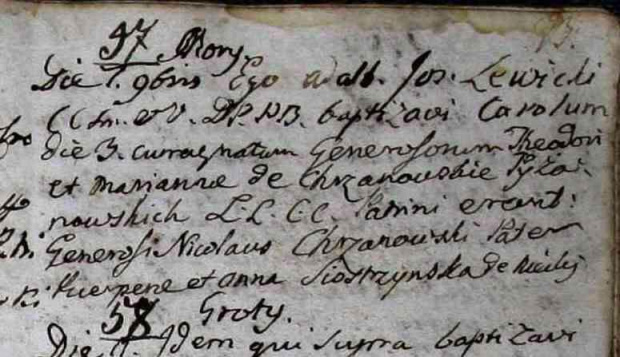 57 Mory.
Die 7. 9bris Ego Adalb. Jos. Lewicki
CCM. & V. DP. NB. baptizavi Carolum
die 3. curr. natum Generosorum Theodori
et Mariannæ de Chrzanowskie Pyło-
nowskich LL. CC. Patrini erant:
Generosi Nicolaus Chrzanowski Pater
et Anna Siostrzynska de
58 Groty.
Die Idem qui supra baptizavi